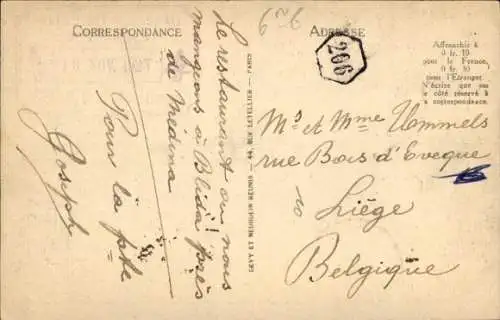 CORRESPONDANCE
ADRESSE
6
206
Affranchir à
0 fr. 10
pour la France,
0 fr.
pour l'Etranger
N'écrire que sur
le côté réservé à
la correspondance.
Le restaurant où nous
mangeons à Blida! près
de Médina
Pour la
Joseph
LEVY ET NEURDEIN REUNIS — 44, RUE LETELLIER — PARIS
Mr et Mme Uemmels
rue Bois d'Eveque
10
Liège
Belgique